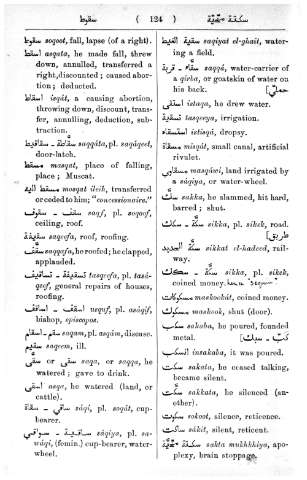 سقوط ( 124 ) سكتة مخيّة
سقوط soqoot, fall, lapse (of a right).
اسقط asqata, he made fall, threw
down, annulled, transferred a
right, discounted; caused abor-
tion; deducted.
اسقاط isqát, a causing abortion,
throwing down, discount, trans-
fer, annulling, deduction, sub-
traction.
سقاطة ـ سقاقيط saqqáta, pl. saqáqeet,
door-latch.
مسقط masqat, place of falling,
place; Muscat.
مسقط اليه mosqat ileih, transferred
or ceded to him; "concessionaire."
سقف ـ سقوف saqf, pl. soqoof,
ceiling, roof.
سقيفة saqeefa, roof, roofing.
سقف saqqafa, he roofed; he clapped,
applauded.
تسقيفة ـ تساقيف tasqeefa, pl. tasá-
qeef, general repairs of houses,
roofing.
اسقف ـ اساقف usquf, pl. asáqif,
bishop, episcopos.
سقم ـ اسقام saqam, pl. asqám, disease.
سقيم saqeem, ill.
سقى or سقّى saqa, or saqqa, he
watered; gave to drink.
اسقى asqa, he watered (land, or
cattle).
ساقي ـ سقاة sáqi, pl. soqát, cup-
bearer.
ساقية ـ سواقي sáqiya, pl. sa-
wáqi, (femin.) cup-bearer, water-
wheel.
سقية الغيط saqiyat el-ghait, water-
ing a field.
سقّاء ـ قربة saqqá, water-carrier of
a qirba, or goatskin of water on
his back.
استقى istaqa, he drew water.
تسقية tasqeeya, irrigation.
استسقاء istisqá, dropsy.
مسقاة misqát, small canal, artificial
rivulet.
مسقاوي masqáwi, land irrigated by
a sáqiya, or water-wheel.
سك sakka, he slammed, hit hard,
barred; shut.
سكة ـ سكك sikka, pl. sikek, road.
سكة الحديد sikkat el-hadeed, rail-
way.
سكة ـ سكك sikka, pl. sikek,
coined money.
مسكوكات maskookát, coined money.
مسكوك maskook, shut (door).
سكب sakaba, he poured, founded
metal.
انسكب insakaba, it was poured.
سكت sakata, he ceased talking,
became silent.
سكّت sakkata, he silenced (an-
other).
سكوت sokoot, silence, reticence.
ساكت sákit, silent, reticent.
سكتة مخيّة sakta mukhkhiya, apo-
plexy, brain stoppage.